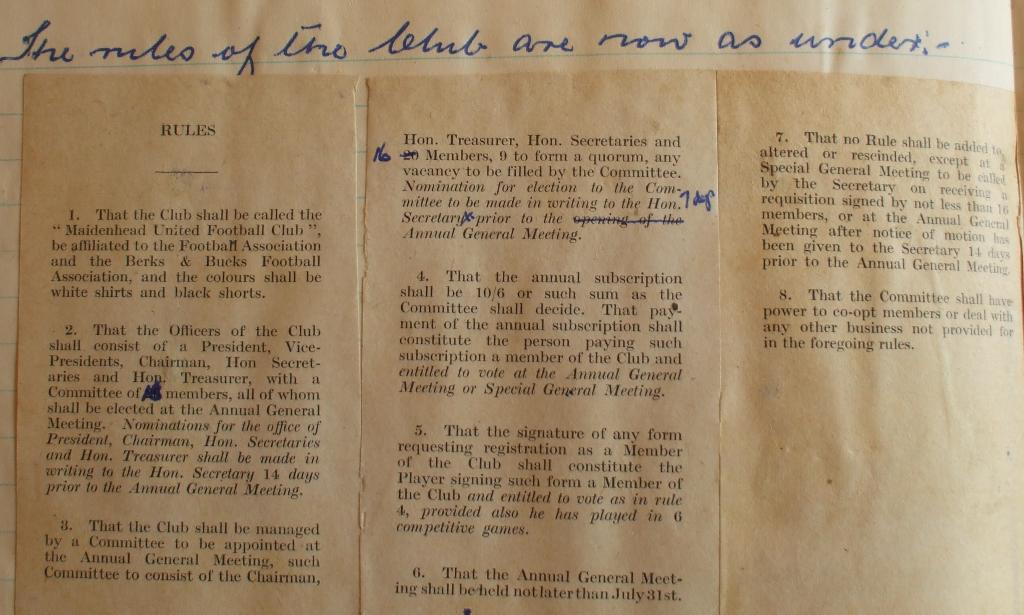 The rules of the Club are now as under:-
RULES
1. That the Club shall be called the
“ Maidenhead United Football Club ”,
be affiliated to the Football Association
and the Berks & Bucks Football
Association, and the colours shall be
white shirts and black shorts.
2. That the Officers of the Club
shall consist of a President, Vice-
Presidents, Chairman, Hon Secret-
aries and Hon. Treasurer, with a
Committee of members, all of whom
shall be elected at the Annual General
Meeting. Nominations for the office of
President, Chairman, Hon. Secretaries
and Hon. Treasurer shall be made in
writing to the Hon. Secretary 14 days
prior to the Annual General Meeting.
3. That the Club shall be managed
by a Committee to be appointed at
the Annual General Meeting, such
Committee to consist of the Chairman,
Hon. Treasurer, Hon. Secretaries and
16 20 Members, 9 to form a quorum, any
vacancy to be filled by the Committee.
Nomination for election to the Com-
mittee to be made in writing to the Hon.
Secretary prior to the opening of the
Annual General Meeting.
4. That the annual subscription
shall be 10/6 or such sum as the
Committee shall decide. That pay-
ment of the annual subscription shall
constitute the person paying such
subscription a member of the Club and
entitled to vote at the Annual General
Meeting or Special General Meeting.
5. That the signature of any form
requesting registration as a Member
of the Club shall constitute the
Player signing such form a Member of
the Club and entitled to vote as in rule
4, provided also he has played in 6
competitive games.
6. That the Annual General Meet-
ing shall be held not later than July 31st.
7. That no Rule shall be added to,
altered or rescinded, except at a
Special General Meeting to be called
by the Secretary on receiving a
requisition signed by not less than 16
members, or at the Annual General
Meeting after notice of motion has
been given to the Secretary 14 days
prior to the Annual General Meeting.
8. That the Committee shall have
power to co-opt members or deal with
any other business not provided for
in the foregoing rules.